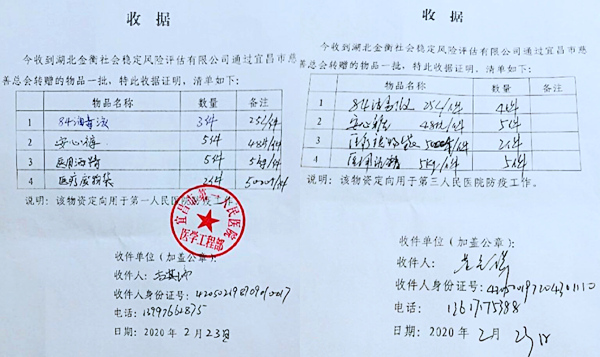 收 据
今收到湖北金衡社会稳定风险评估有限公司通过宜昌市慈
善总会转赠的物品一批,特此收据证明,清单如下:
物品名称 数量 备注
1 84消毒液 3件 25L/件
2 安心裤 5件 48片/件
3 医用酒精 5件 5kg/件
4 医疗废物袋 2件
说明:该物资定向用于第一人民医院防疫工作
宜昌市第一人民医院
医学工程部
收件单位(加盖公章):
收件人:
收件人身份证号:
电话:
日期:2020 年 2月 23日
收 据
今收到湖北金衡社会稳定风险评估有限公司通过宜昌市慈
善总会转赠的物品一批,特此收据证明,清单如下:
物品名称 数量 备注
1 84消毒液 25L/件 4件
2 安心裤 48片/件 5件
3 2件
4 医用酒精 5kg/件 5件
说明:该物资定向用于第三人民医院防疫工作。
收件单位(加盖公章):
收件人:
收件人身份证号:
电话:
日期:2020 年 2月 23日